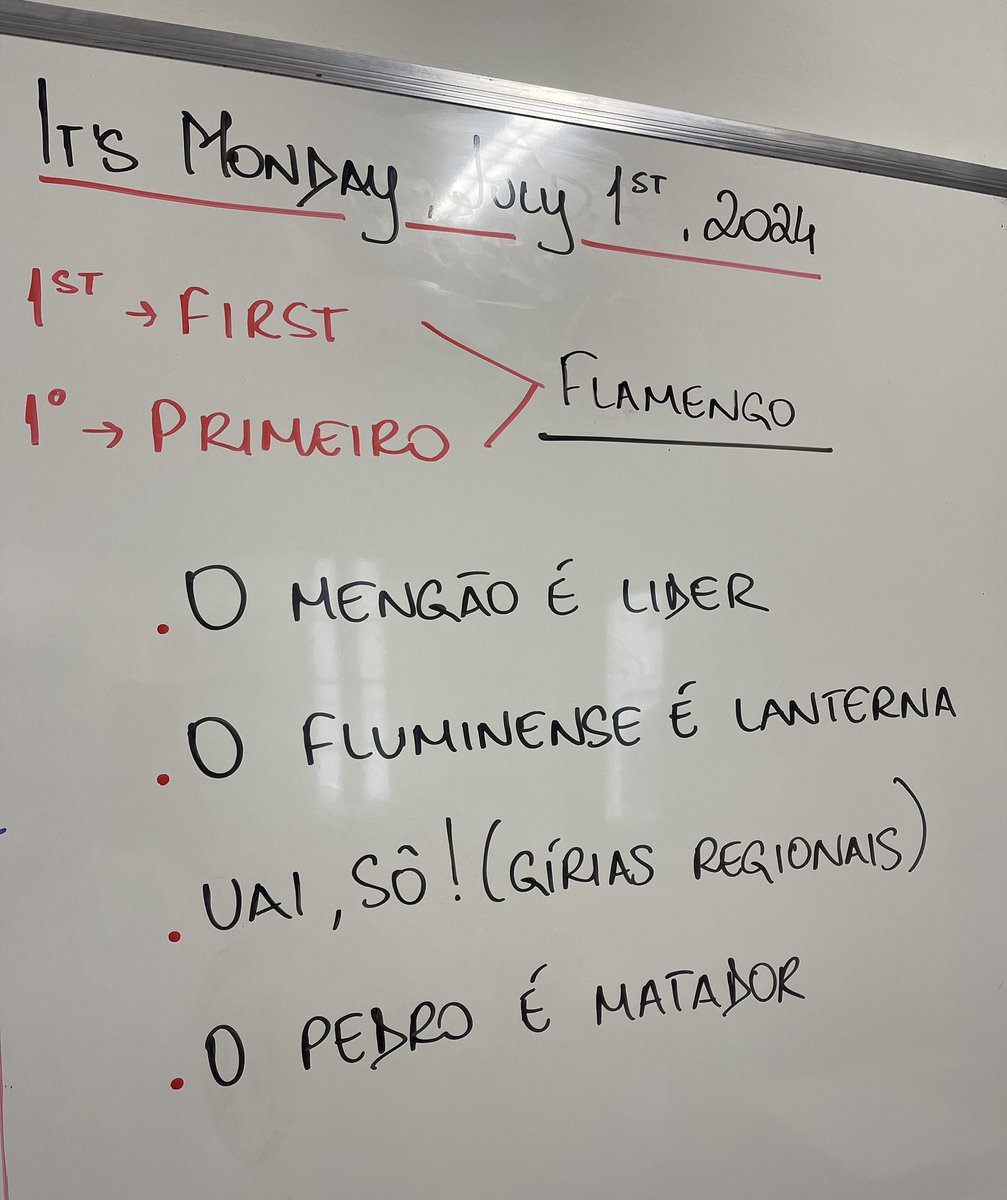 IT'S MONDAY, JULY 1ST, 2024
1ST → FIRST
1º → PRIMEIRO
FLAMENGO
. O MENGÃO É LIDER
. O FLUMINENSE É LANTERNA
. UAI, SÔ! (GÍRIAS REGIONAIS)
. O PEDRO É MATADOR